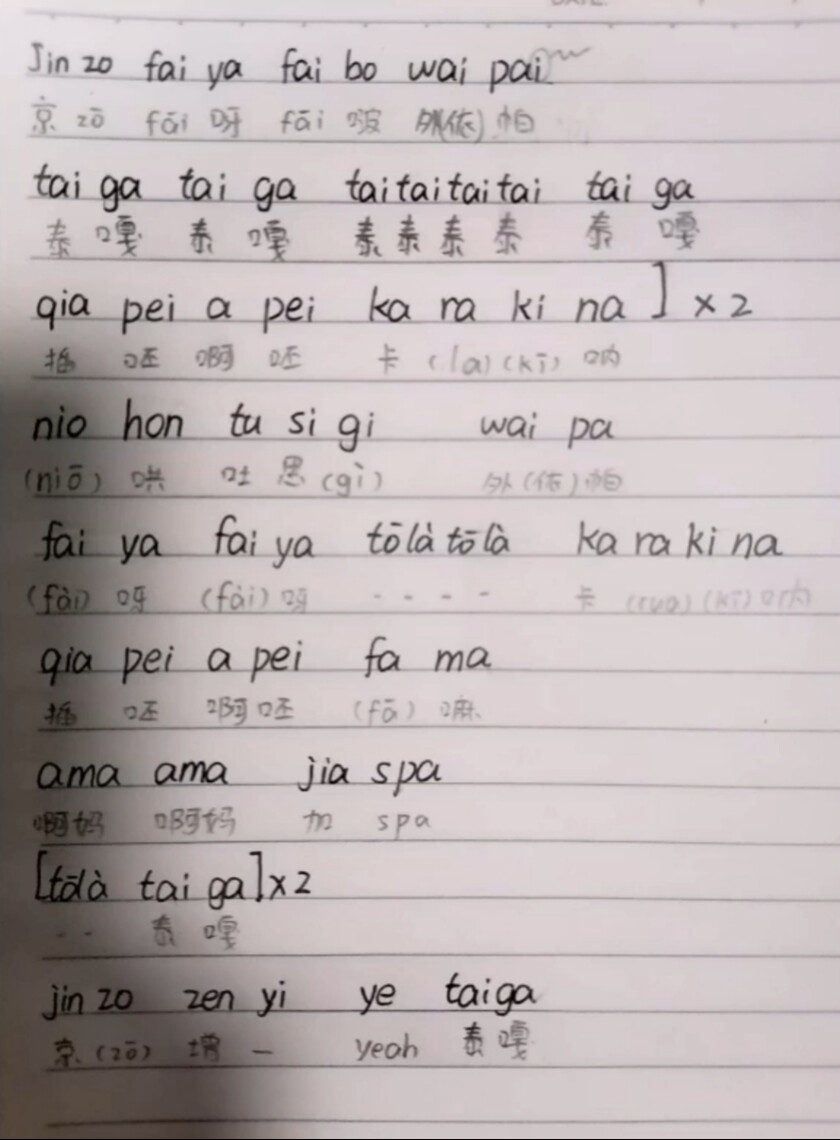 Jin zo fai ya fai bo wai pai
京 zō fāi 呀 fāi 啵 外(依)帕
tai ga tai ga taitaitaitai tai ga
泰 嘎 泰 嘎 泰 泰 泰 泰 泰 嘎
qia pei a pei ka ra ki na ] ×2
掐 呸 啊 呸 卡 (la) (kī) 呐
nio hon tu si gi wai pa
(niō) 哄 吐 思 (gì) 外(依)帕
fai ya fai ya tōlàtōlà ka ra ki na
(fài) 呀 (fài) 呀 - - - - 卡 (rua) (kī) 呐
qia pei a pei fa ma
掐 呸 啊 呸 (fā) 嘛
ama ama jia spa
啊妈 啊妈 加 spa
[tōlà tai ga]×2
- - 泰 嘎
jin zo zen yi ye taiga
京 (zō) 增 一 yeah 泰 嘎